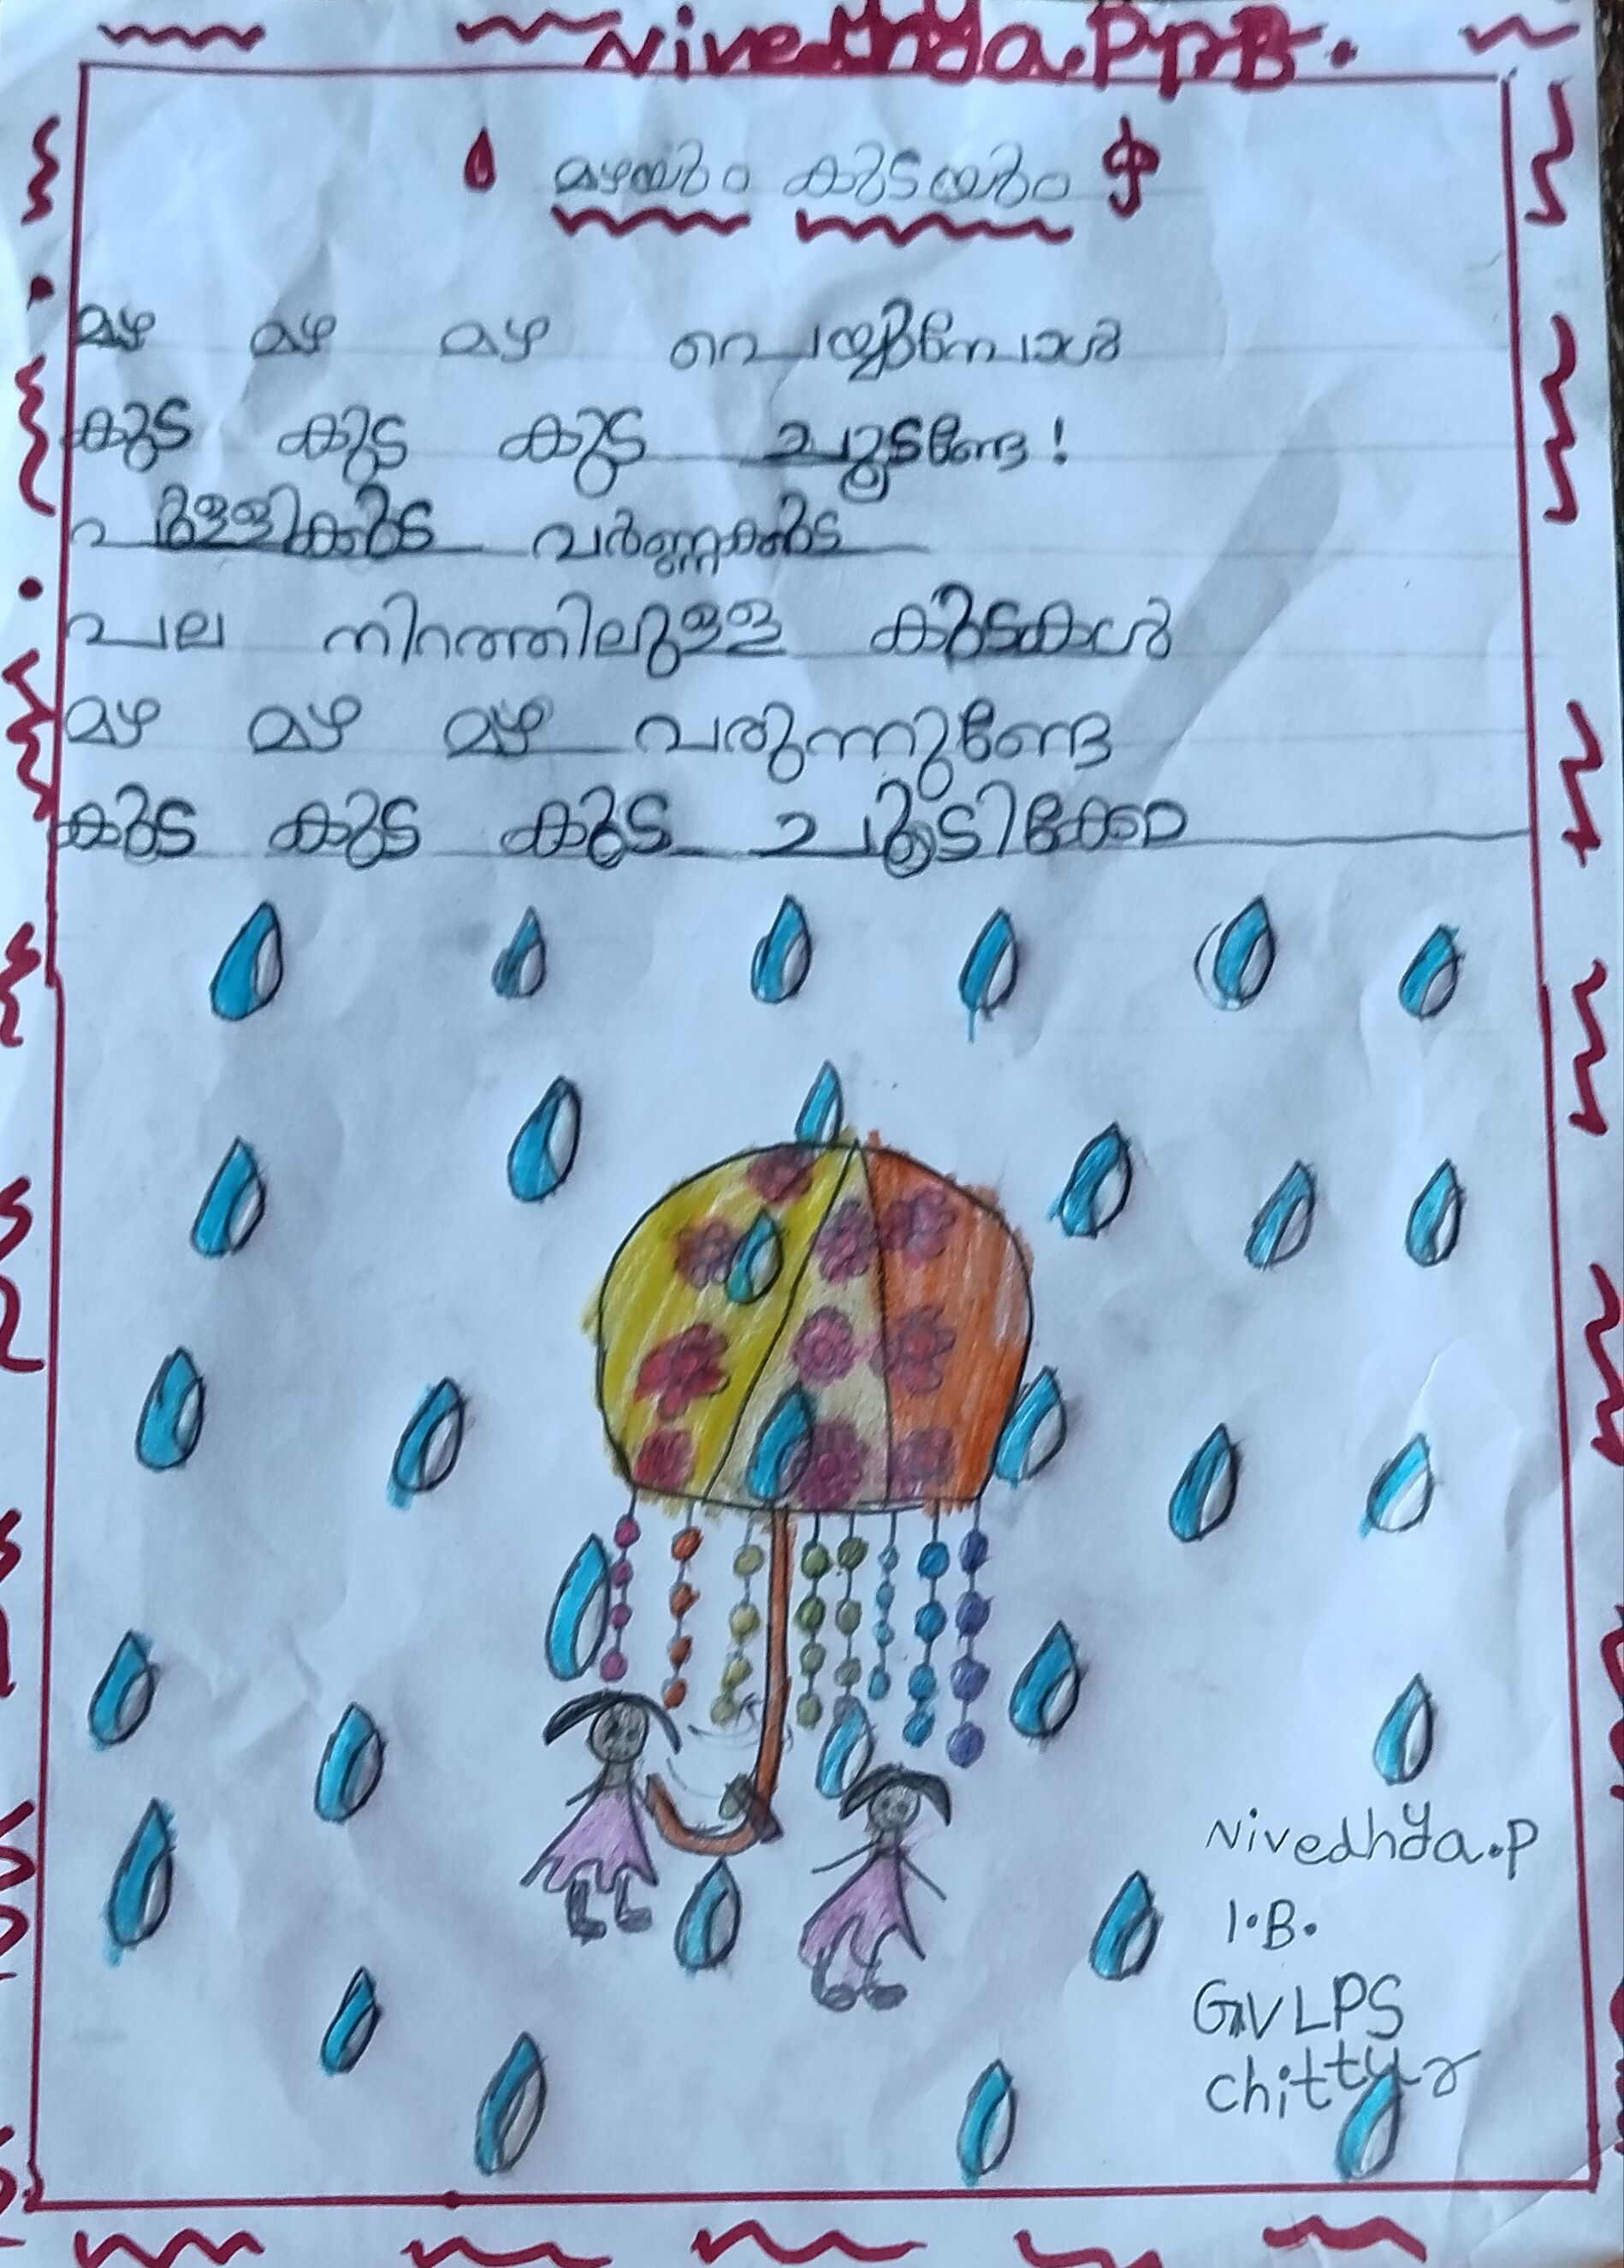 Nivedhya.P 1.B.
മഴയും കുടയും
മഴ മഴ മഴ പെയ്യുമ്പോൾ
കുട കുട കുട ചൂടണ്ടേ!
പുള്ളികുട വർണ്ണകുട
പല നിറത്തിലുള്ള കുടകൾ
മഴ മഴ മഴ വരുന്നുണ്ടേ
കുട കുട കുട ചൂടിക്കോ
Nivedhya.P
1.B.
GVLPS
chittur